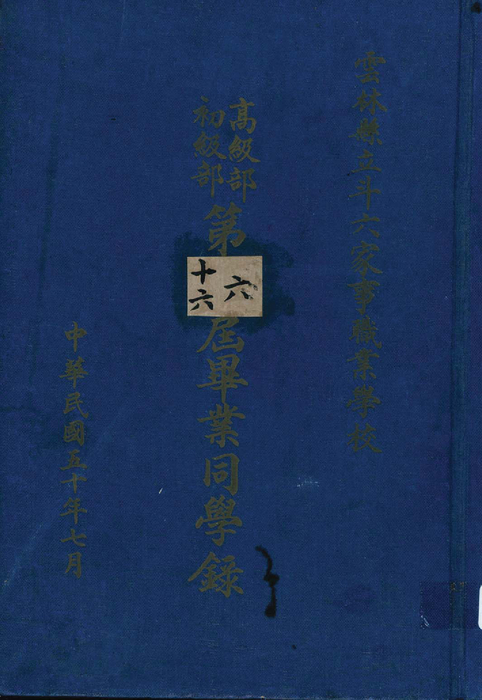 雲林縣立斗六家事職業學校
高級部
初級部
第
六
十六
屆畢業同學錄
中華民國五十年七月